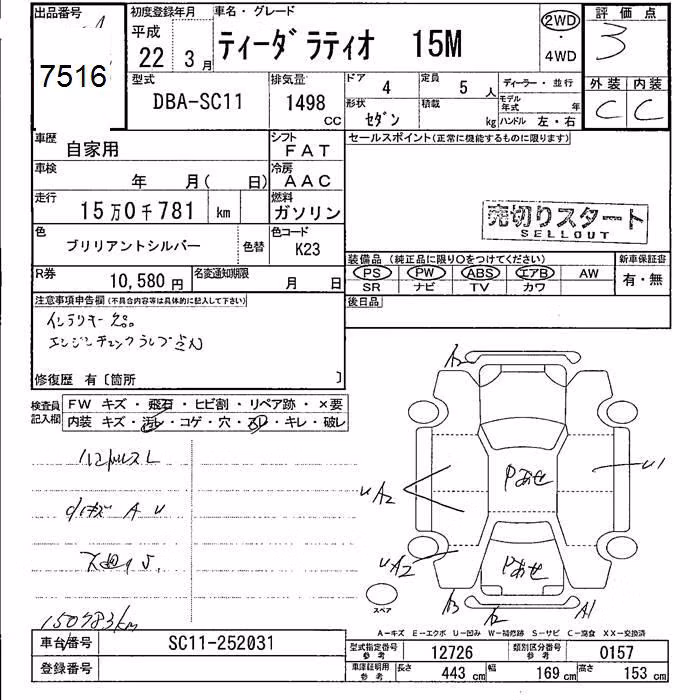 出品番号
A
7516
初度登録年月
平成
22 3 月
車名・グレード
ティーダ ラティオ 15M
2WD
・
4WD
評価点
3
外装 内装
C C
型式
DBA-SC11
排気量
1498
CC
ドア
4
定員
5 人
ディーラー・並行
モデル年式 年
形状
セダン
積載
kg
ハンドル 左・右
車歴
自家用
シフト
FAT
車検
年 月( 日)
冷房
AAC
走行
15万0千781 km
燃料
ガソリン
色
ブリリアントシルバー
色替
色コード
K23
R券
10,580 円
名変通知期限
月 日
セールスポイント(正常に機能するものに限ります)
売切りスタート
SELLOUT
装備品(純正品に限り○をつけてください)
PS PW ABS エアB AW
SR ナビ TV カワ
新車保証書
有・無
後日品
注意事項申告欄(不具合内容等は具体的に記入して下さい)
エンジンチェックランプ点灯
修復歴 有〔箇所 〕
検査員記入欄
FW キズ・飛石・ヒビ割・リペア跡・×要
内装 キズ・汚レ・コゲ・穴・スレ・キレ・破レ
ハンドルスレ
150783km
A2
UA2
UA2
U1
A3
A2
A1
スペア
A-キズ E-エクボ U-凹み W-補修跡 S-サビ C-腐食 XX-交換済
車台番号
SC11-252031
登録番号
型式指定番号 参考
12726
類別区分番号 参考
0157
車庫証明用 参考
長さ 443 cm 幅 169 cm 高さ 153 cm